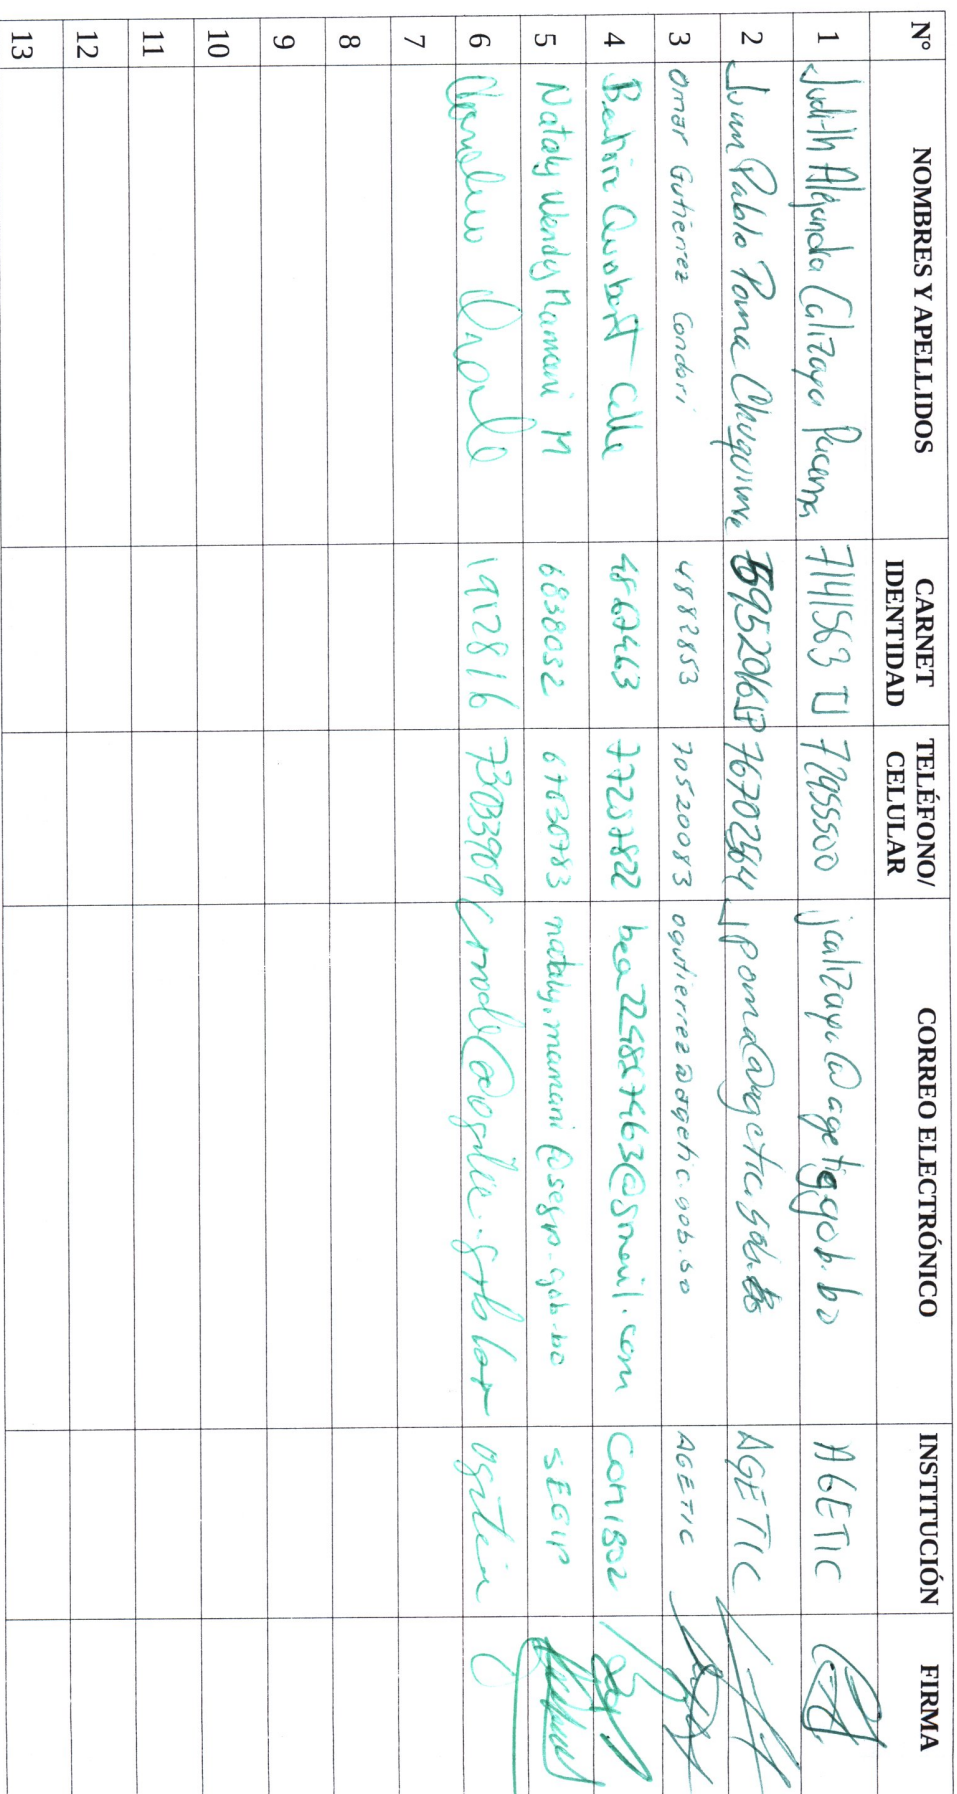 N° NOMBRES Y APELLIDOS CARNET IDENTIDAD TELÉFONO/ CELULAR CORREO ELECTRÓNICO INSTITUCIÓN FIRMA
1 Judith Alejandra Calizaya 7141563 TJ 72955500 jcalizaya@agetic.gob.bo AGETIC
2 Juan Pablo Poma Chuquimia 76702564 jpoma@agetic.gob.bo AGETIC
3 Omar Gutierrez Condori 4882853 70520083 ogutierrez@agetic.gob.bo AGETIC
4 Calle 4867463 77257822 AGETIC
5 Nataly Wendy Mamani M 6838032 67630783 nataly.mamani@segip.gob.bo SEGIP
6 1912816
7
8
9
10
11
12
13